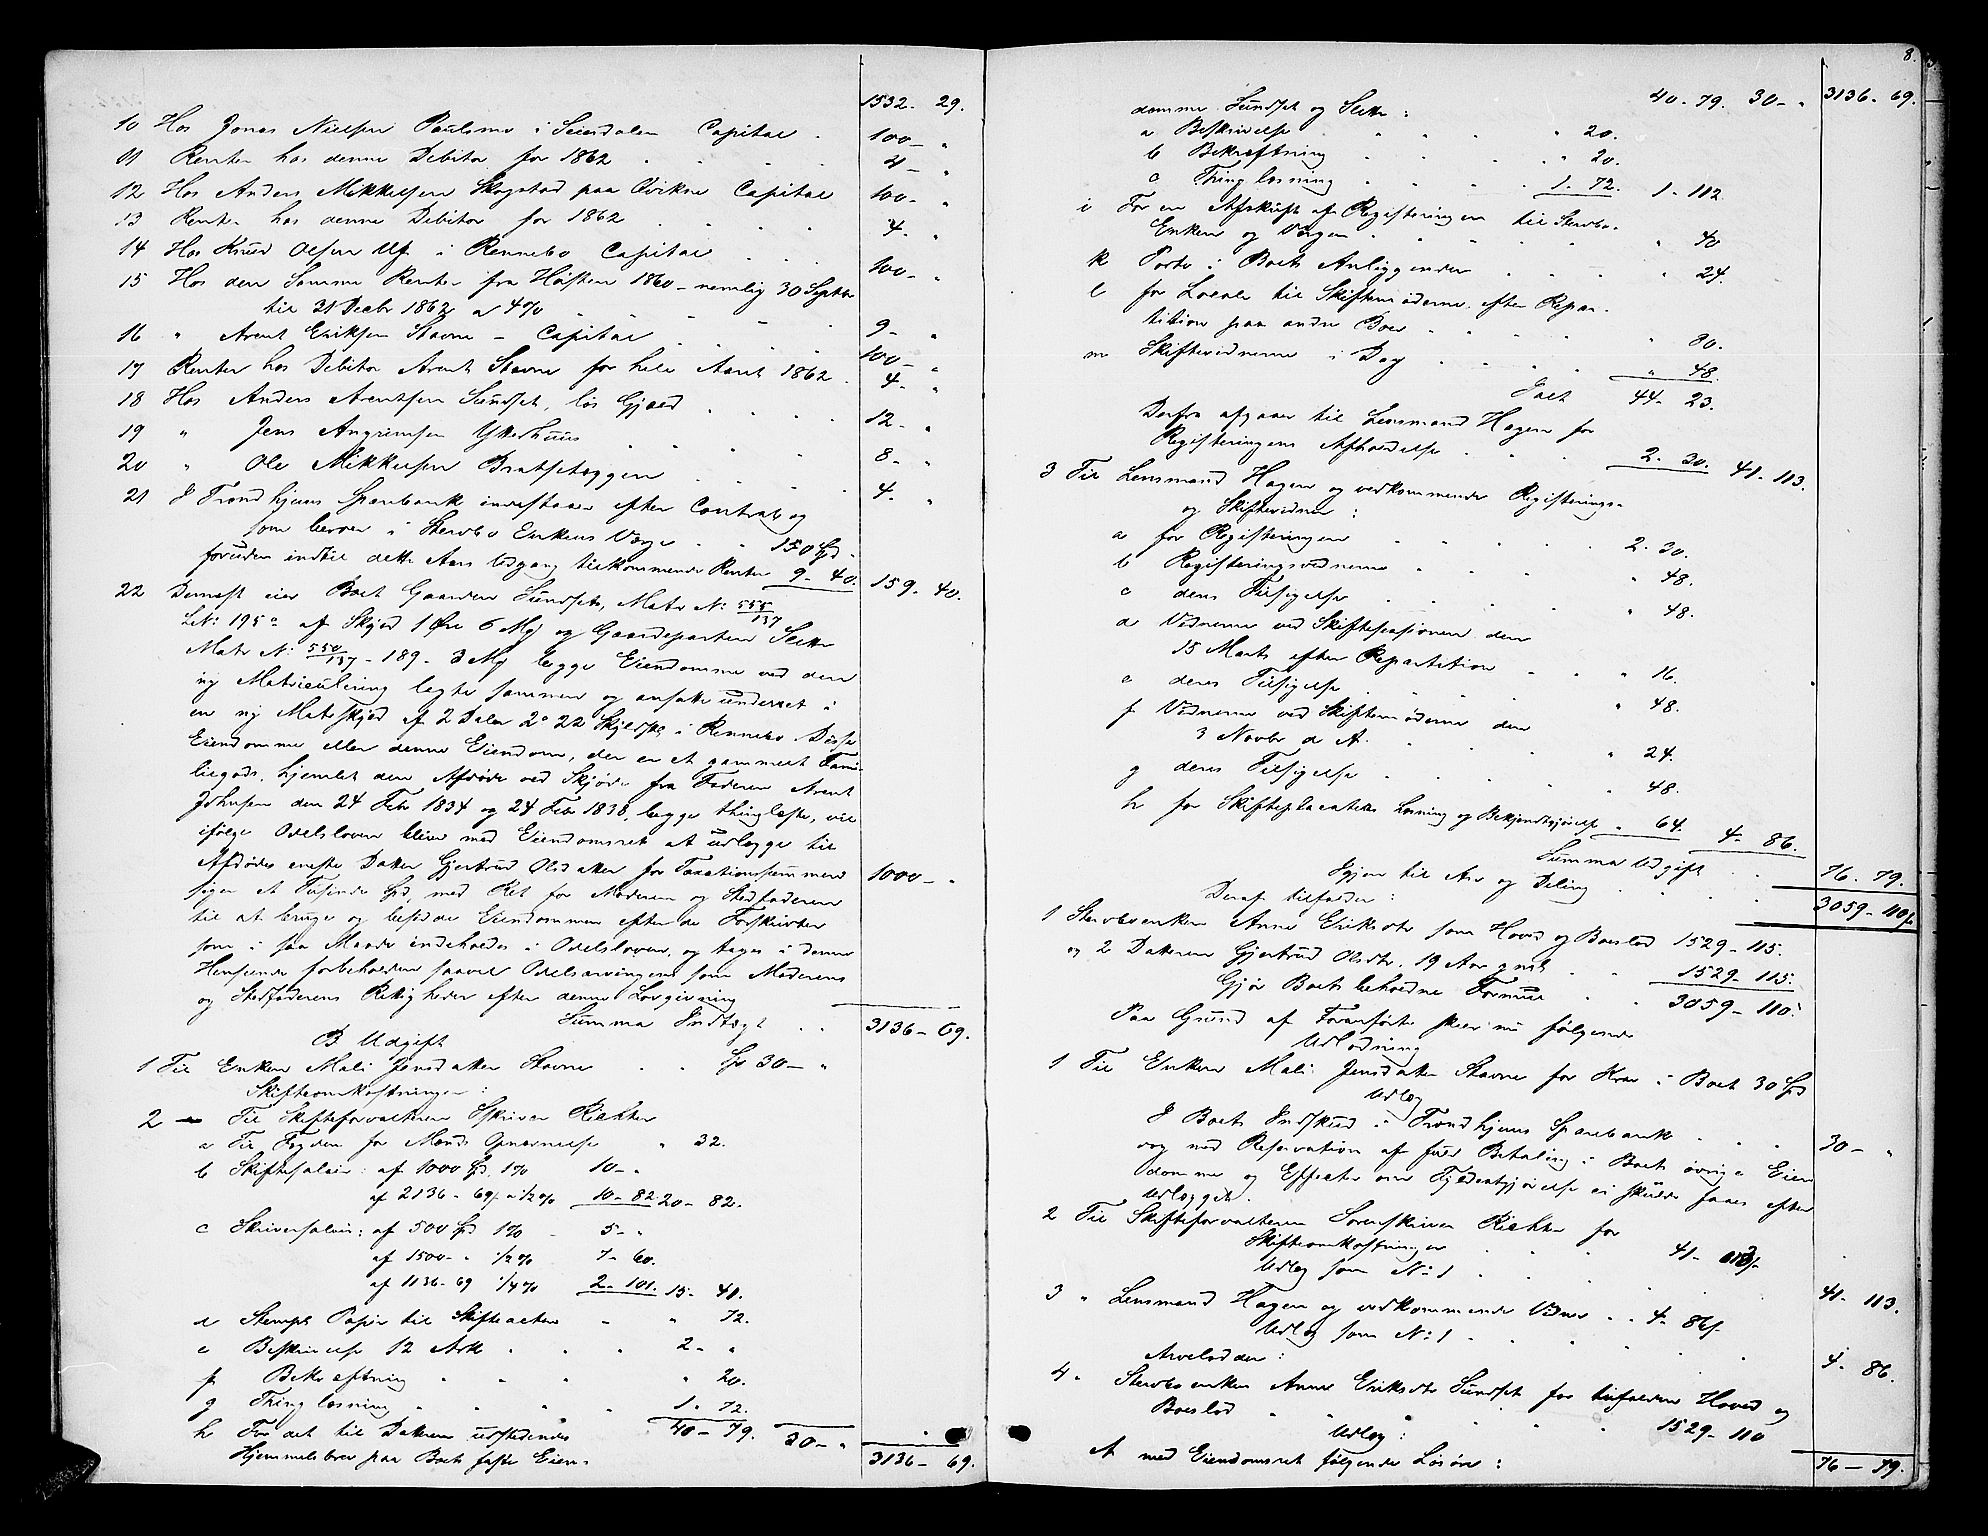 1532- 29.
10 Hos Jonas Nielsen Paulsmo i Seiersdalen Capital . 100- "
11 Renter hos denne Debitor for 1862 . . . . 4- "
12 Hos Anders Mikkelsen Skogstad paa Qvikne Capital 100- "
13 Renter hos denne Debitor for 1862 . . . . 4. "
14 Hos Knud Olsen Uf i Rennebo Capital . . . 100- "
15 Hos den Samme Renter fra Høsten 1860 - nemlig 30 Septbr
til 31 Decbr 1862 a 4% . . . . 9- "
16 " Arent Eriksen Stavne - Capital . . . 100- "
17 Renter hos Debitor Arent Stavne for hele Aaret 1862 . 4- "
18 Hos Anders Arentsen Sundset, løs Gjæld . . . . 12- "
19 " Jens Angrimsen Ykerhuus . . . . 8- "
20 " Ole Mikkelsen Bratskeggen . . . . 4. "
21 I Trondhjems Sparebank indestaaer efter Contrab og
som beroer i Sterbo Enkens Værge . . 150 Spd.
foruden indtil dette Aars Udgang tilkommende Renter 9- 40. 159. 40.
22 Dernæst eier Boet Gaarden Sundset, Matr N: 555/137
LN: 195a af Skyld 1 Øre 6 Mg og Gaardeparten Slette
Matr N: 550/137 - 189 - 3 Mg begge Eiendomme ved den
ny Matriculering lagte sammen og ansatte under et i
en ny Matr Skyld af 2 Daler 2o 22 Skill i Rennebo. Disse
Eiendomme eller denne Eiendom, der er et gammelt Fami-
liegods, hjemlet den Afdøde ved Skjøde fra Faderen Arent
Johnsen den 24 Febr 1834 og 24 Febr 1838, begge thinglæste, vil
ifølge Odelsloven blive med Eiendomsret at udlægge til
Afdødes eneste Datter Gjertrud Olsdatter for Taxationssummen
siger et Tusinde Spd, med Ret for Moderen og Stedfaderen 1000- "
til at bruge og besidde Eiendommen efter de Forskrivter
som i saa Maade indeholdes i Odelsloven, og tages i denne
Henseende forbeholden saavel Odelsarvingens som Moderens
og Stedfaderens Rettigheder efter denne Lovgivning
Summa Indtægt . . 3136- 69.
B. Udgift
1 Til Enken Mali Jensdatter Stavne . . Spd 30- "
Skifteomkostninger:
2 - Til Skifteforvalteren SSkriver Richter
a Til Fogden for Mands Opnævnelse " 32.
b Skiftesalair: af 1000 Spd. 1% 10- "
af 2136 - 69 s. a 1/2% 10- 82 20- 82.
c Skriversalair: af 500 Spd 1% - 5- "
af 1500- " 1/2% 7- 60.
af 1136- 69 1/4% 2- 101. 15- 41.
d Stemplt Papir til Skifteacten - " 72.
e Beskrivelse 12 Ark . . . 2- "
f Bekræftning " " " " 20.
g Thinglæsning " " " 1. 72.
h For det til Datteren udstedendes 40- 79. 30- "
Hjemmelsbrev paa Boets faste Eien- 3136- 69.
8.
domme Sundset og Slette: 40- 79. 30- " 3136- 69.
a Beskrivelse . . . . " 20.
b Bekræftning . . . . " 20.
c Thinglæsning . . . . 1. 72. 1- 112.
i For en Afskrift af Registeringen til Sterbo-
Enken og Værgen . . . . " 40
k Porto i Boets Anliggender . . . " 24.
l for Locale til Skiftemøderne efter Repar-
tition paa andre Boer . . . " 80.
m Skiftevidnerne i Dag . . . " 48.
Ialt 44- 23.
Derfra afgaaer til Lensmand Hagen for
Registeringens Afholdelse . . . 2. 30. 41- 113.
3 Til Lensmand Hagen og vedkommende Registerings-
og Skiftevidner:
a for Registeringen . . . . 2. 30.
b Registeringsvidnerne . . . " 48.
c deres Tilsigelse . . . . " 48.
d Vidnerne ved Skiftesessionen den
15 Marts efter Repartition - - " 16.
e deres Tilsigelse . . . . " 48.
f Vidnerne ved Skiftemøderne den
3 Novbr d. A. . . . . " 24.
g deres Tilsigelse . . . . " 48.
h for Skifteplacatets Læsning og Bekjendtgjørelse " 64. 4- 86.
Summa Udgift . . 76. 79.
Igjen til Arv og Deling . . . 3059- 110 s.
Deraf tilfalder:
1 Sterboenken Anne Eriksdtr som Hoved og Boeslod 1529- 115.
og 2 Datteren Gjertrud Olsdtr. 19 Aar gml . . 1529- 115.
Gjør Boets beholdne Formue . . 3059- 110.
Paa Grund af Foranførte skeer nu følgende
Udlodning
1 Til Enken Mali Jensdatter Stavne for Krav i Boet 30 Spd
Udlæg
I Boets Indskud i Trondhjems Sparebank . . . 30- "
dog med Reservation af fuld Betaling i Boets øvrige Eien
domme og Effecter om Fyldestgjørelse ei skulde faaes efter
Udlægget.
2 Til Skifteforvalteren Sorenskriver Richter for
Skifteomkostninger . . . 41- 113 s.
Udlæg som N: 1 . . . . 41- 113.
3 " Lensmand Hagen og vedkommende Vidner . . 4- 86 s.
Udlæg som N: 1 . . . . 4. 86.
Arvelodder:
4 " Sterboenken Anne Eriksdtr Sundset for tilfalden Hoved og
Boeslod " " " " 1529- 110
Udlæg:
A med Eiendomsret følgende Løsøre: 76- 79.